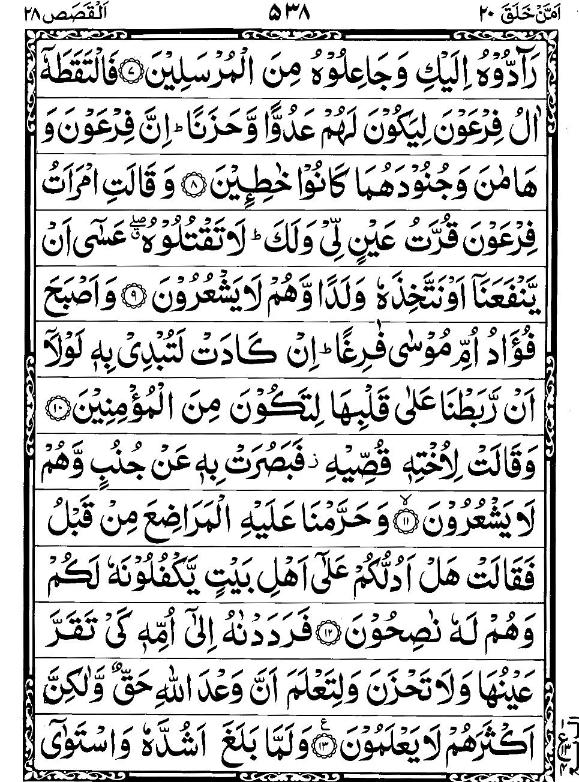 اَمَّنْ خَلَقَ ٢٠ ٥٣٨ اَلْقَصَص ٢٨
رَآدُّوْهُ اِلَيْكِ وَجَاعِلُوْهُ مِنَ الْمُرْسَلِيْنَ ﴿٧﴾ فَالْتَقَطَهٗٓ
اٰلُ فِرْعَوْنَ لِيَكُوْنَ لَهُمْ عَدُوًّا وَّحَزَنًا ؕ اِنَّ فِرْعَوْنَ وَ
هَامٰنَ وَجُنُوْدَهُمَا كَانُوْا خٰطِـِٕيْنَ ﴿٨﴾ وَقَالَتِ امْرَاَتُ
فِرْعَوْنَ قُرَّتُ عَيْنٍ لِّيْ وَلَكَ ؕ لَا تَقْتُلُوْهُ ۖۗ عَسٰٓى اَنْ
يَّنْفَعَنَآ اَوْ نَتَّخِذَهٗ وَلَدًا وَّهُمْ لَا يَشْعُرُوْنَ ﴿٩﴾ وَاَصْبَحَ
فُؤَادُ اُمِّ مُوْسٰى فٰرِغًا ؕ اِنْ كَادَتْ لَتُبْدِيْ بِهٖ لَوْلَآ
اَنْ رَّبَطْنَا عَلٰى قَلْبِهَا لِتَكُوْنَ مِنَ الْمُؤْمِنِيْنَ ﴿١٠﴾
وَقَالَتْ لِاُخْتِهٖ قُصِّيْهِ ؗ فَبَصُرَتْ بِهٖ عَنْ جُنُبٍ وَّهُمْ
لَا يَشْعُرُوْنَ ﴿١١﴾ ۙ وَحَرَّمْنَا عَلَيْهِ الْمَرَاضِعَ مِنْ قَبْلُ
فَقَالَتْ هَلْ اَدُلُّكُمْ عَلٰٓى اَهْلِ بَيْتٍ يَّكْفُلُوْنَهٗ لَكُمْ
وَهُمْ لَهٗ نٰصِحُوْنَ ﴿١٢﴾ فَرَدَدْنٰهُ اِلٰٓى اُمِّهٖ كَيْ تَقَرَّ
عَيْنُهَا وَلَا تَحْزَنَ وَلِتَعْلَمَ اَنَّ وَعْدَ اللّٰهِ حَقٌّ وَّلٰكِنَّ
اَكْثَرَهُمْ لَا يَعْلَمُوْنَ ﴿١٣﴾ ع وَلَمَّا بَلَغَ اَشُدَّهٗ وَاسْتَوٰٓى